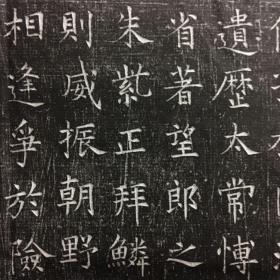 遺歷太常愽
省著望郎之
朱紫正拜鱗
則威振朝野
相逢爭於險